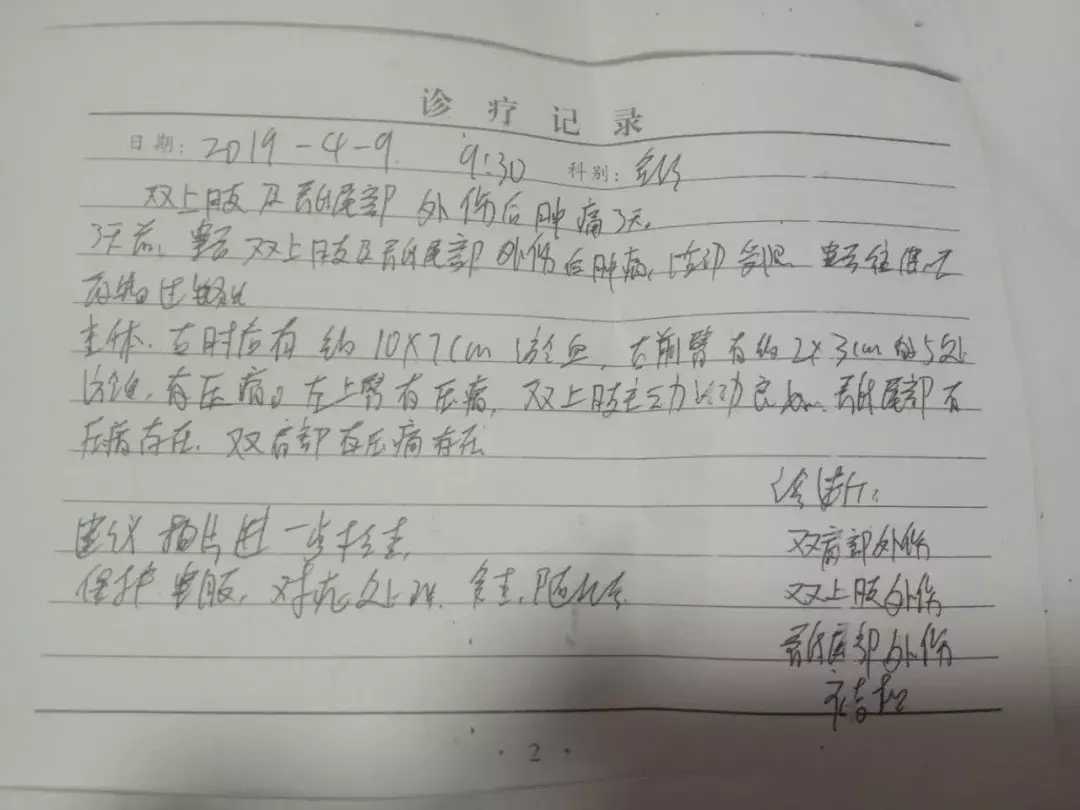 诊疗记录
日期: 2019-4-9 9:30 科别:
双上肢及骶尾部外伤后肿痛3天。
3天前, 患者双上肢及骶尾部外伤后肿痛, 活动受限
查体. 右肘后有约10X7cm淤血, 右前臂有约2X3cm的5处
淤血, 有压痛。左上臂有压痛, 双上肢主动活动良好. 骶尾部有
压痛存在. 双肩部有压痛存在
诊断:
建议拍片进一步检查,
双肩部外伤
保护患肢, 对症处理. 复查, 随诊
双上肢外伤
骶尾部外伤
·2·